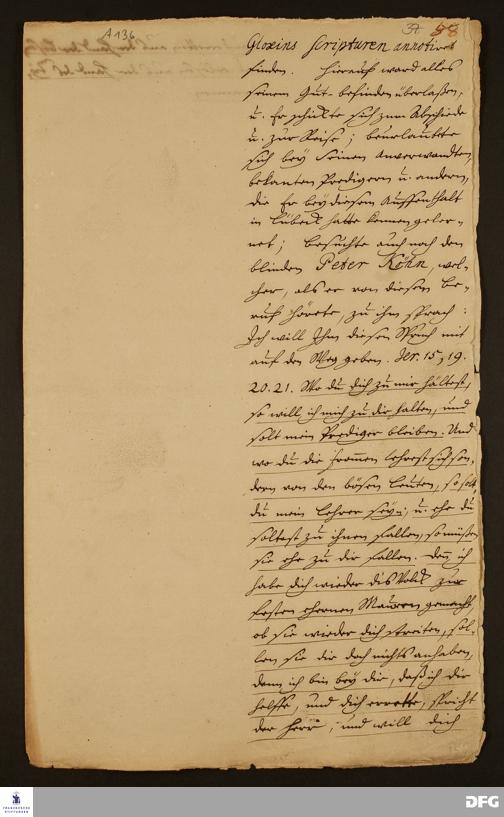 A 136
58
Gloxins Scripturen annotiret
finden. Hierauf ward alles
seinem Gut-befinden überlaßen,
u. Er schickte sich zum Abschiede
u. zur Reise; beurlaubte
sich bey seinen Anverwandten,
bekanten Predigern u. andern,
die Er bey diesem Auffenthalt
in Lübeck hatte kennen geler-
net; besuchte auch noch den
blinden Peter Köhn, wel-
cher, als er von diesem Be-
ruff hörete, zu ihm sprach:
Ich will Ihm diesen Spruch mit
auf den Weg geben. Jer. 15, 19.
20. 21. Wo du dich zu mir hältest,
so will ich mich zu dir halten, und
solt mein Prediger bleiben. Und
wo du die frommen lehrest sich son-
dern von den bösen Leuten, so solt
du mein Lehrer seyn; u. ehe du
soltest zu ihnen fallen, so müßen
sie ehe zu dir fallen. Den ich
habe dich wieder dis Volck zur
festen ehernen Mauren gemacht,
ob sie wieder dich streiten, sol-
len sie dir doch nichts anhaben,
denn ich bin bey dir, daß ich dir
helffe, und dich errette, spricht
der Herr, und will dich
FRANCKESCHE
STIFTUNGEN
DFG